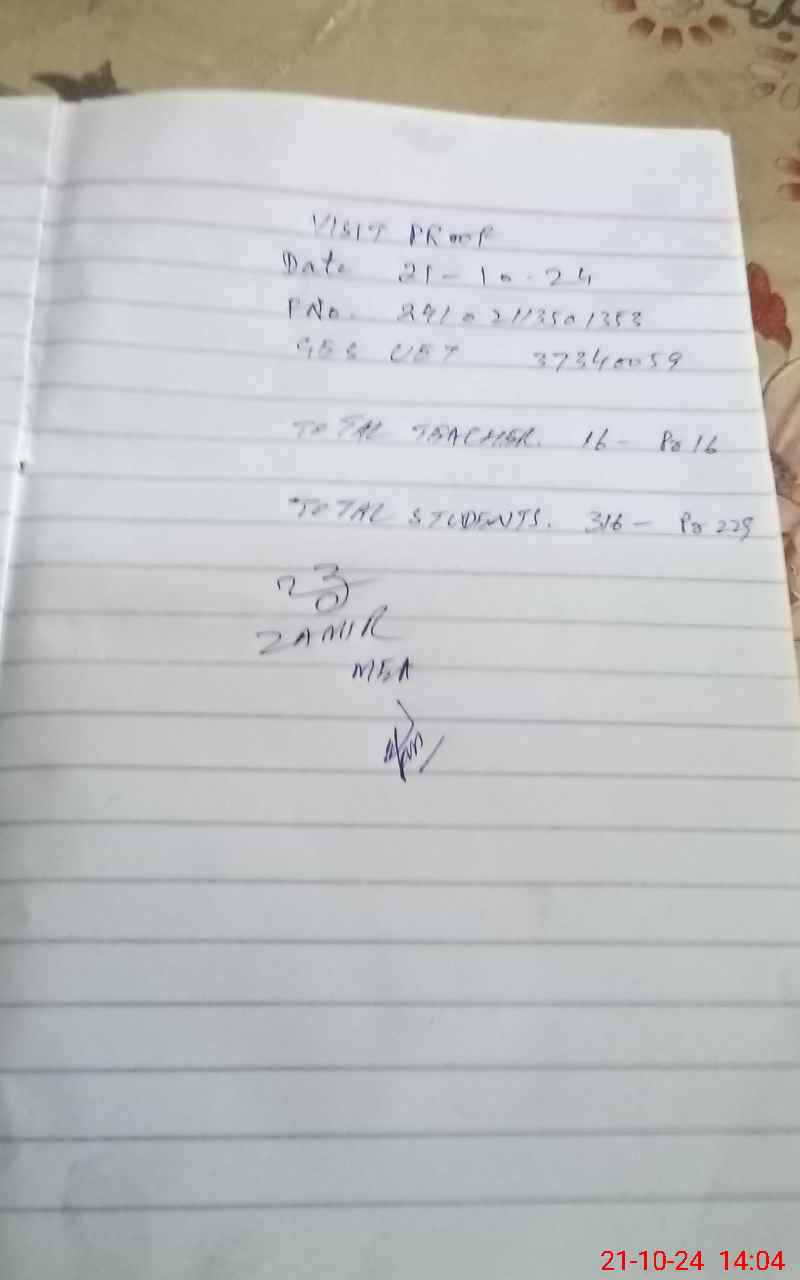 VISIT PROOF
Date 21-10-24
P No. 29102113501353
GES UET 37340059
TOTAL TEACHER. 16 - Pr 16
TOTAL STUDENTS. 316 - Pr 229
ZAMIR
MEA
21-10-24 14:04